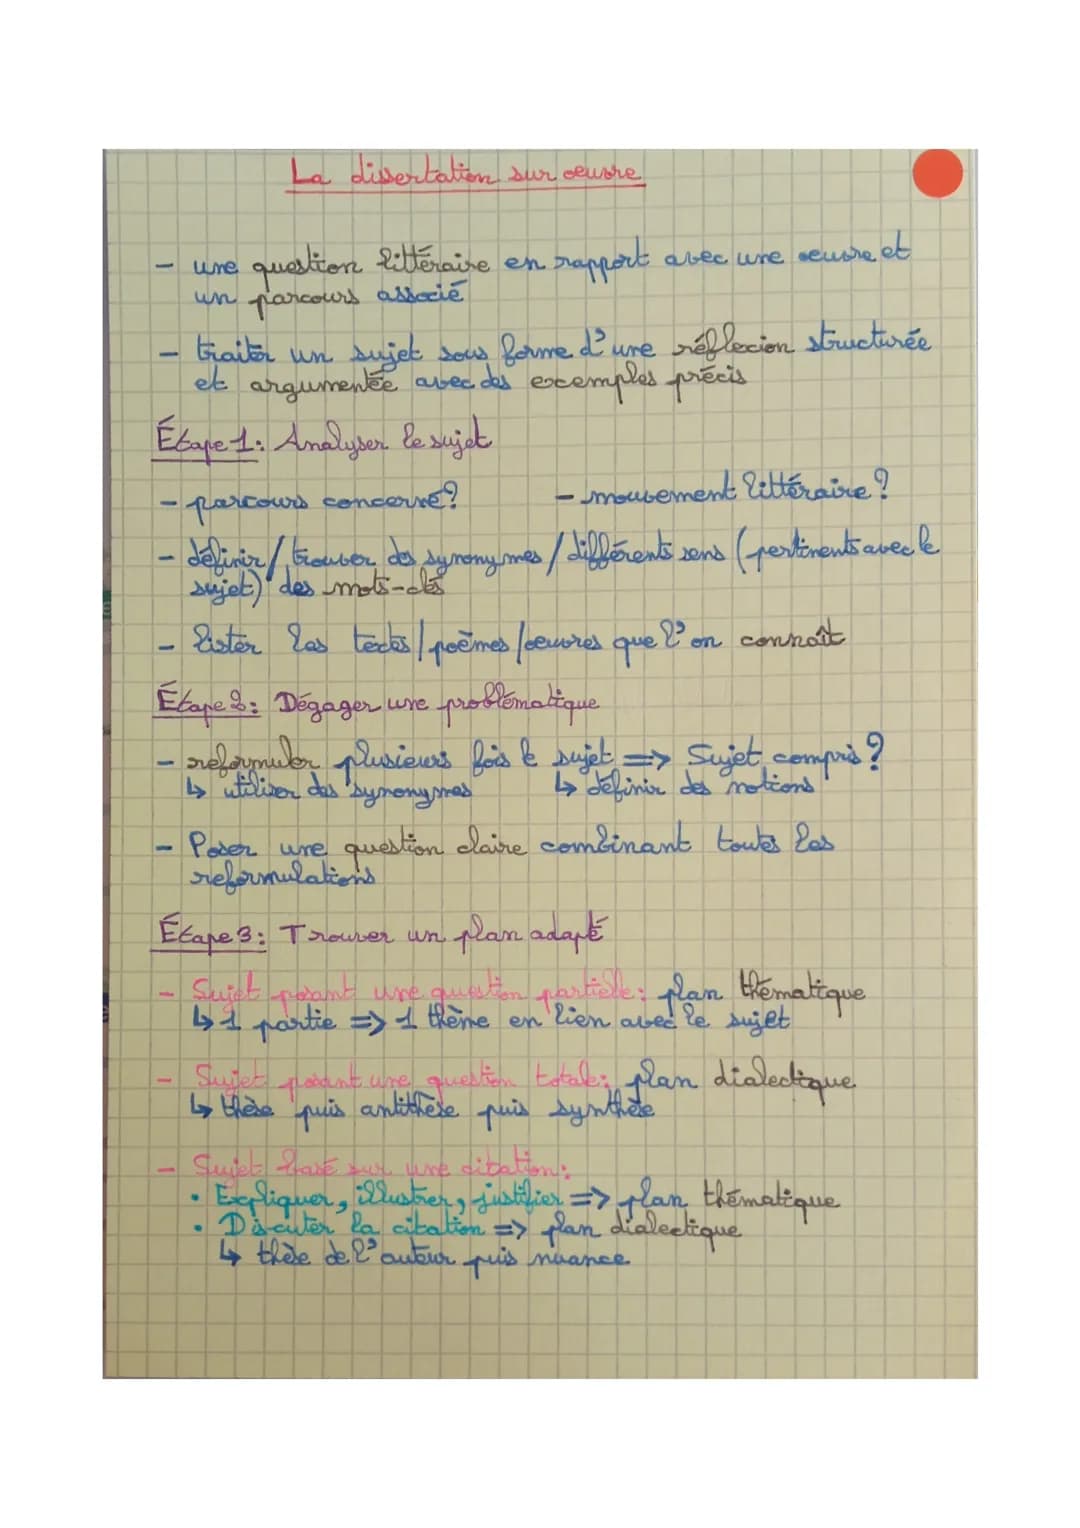 La dissertation sur oeuvre
- une question littéraire en rapport avec une oeuvre et
un parcours associé
- traiter un sujet sous forme d'une réflexion structurée
et argumentée avec des exemples précis
Étape 1: Analyser le sujet
- parcours concerné? - mouvement littéraire?
- définir/trouver des synonymes/différents sens (pertinents avec le
sujet) des mots-clés
- Lister les textes/poèmes/oeuvres que l'on connaît
Étape 2: Dégager une problématique
- reformuler plusieurs fois le sujet => Sujet compris?
↳ utiliser des synonymes ↳ définir des notions
- Poser une question claire combinant toutes les
reformulations
Étape 3: Trouver un plan adapté
- Sujet posant une question partielle: plan thématique
↳ 1 partie => 1 thème en lien avec le sujet
- Sujet posant une question totale: plan dialectique
↳ thèse puis antithèse puis synthèse
- Sujet basé sur une citation:
• Expliquer, illustrer, justifier => plan thématique
• Discuter la citation => plan dialectique
↳ thèse de l'auteur puis nuance